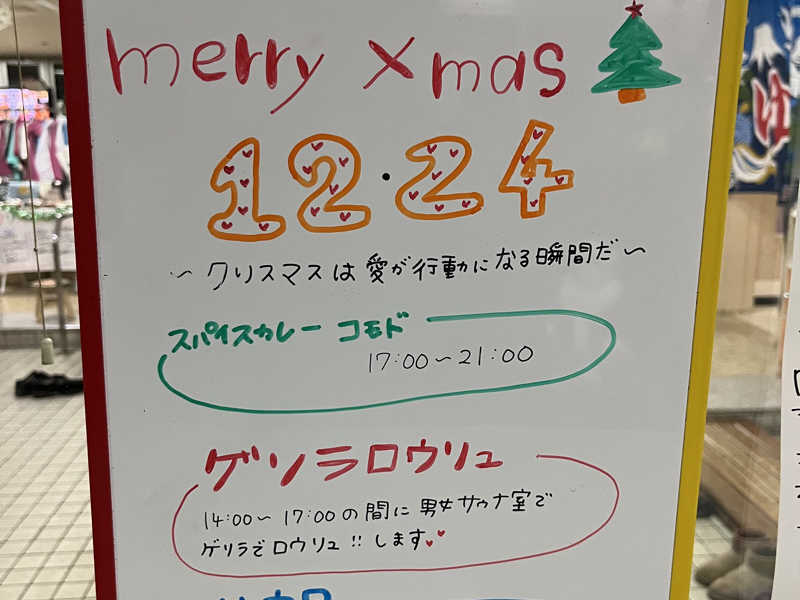 merry Xmas
12・24
~クリスマスは愛が行動になる瞬間だ~
スパイスカレー コモド
17:00~21:00
ゲソラロウリュ
14:00~17:00の間に男女サウナ室で
ゲリラでロウリュ!!します
ゆ